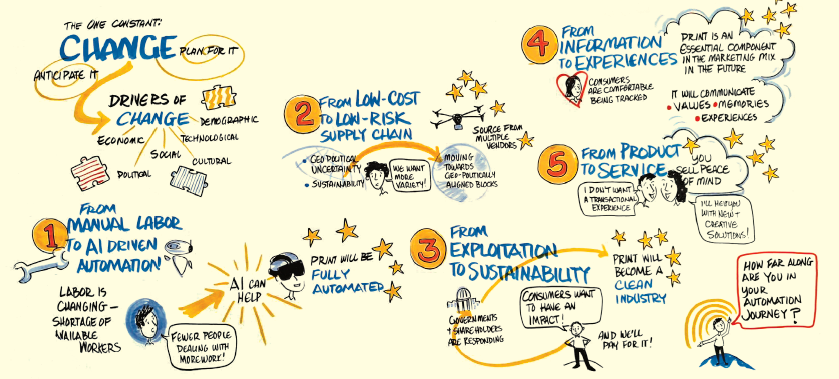 THE ONE CONSTANT:
CHANGE
PLAN FOR IT
ANTICIPATE IT
DRIVERS OF
CHANGE
DEMOGRAPHIC
ECONOMIC
TECHNOLOGICAL
SOCIAL
CULTURAL
POLITICAL
1
FROM
MANUAL LABOR
TO AI DRIVEN
AUTOMATION!
LABOR IS
CHANGING –
SHORTAGE OF
AVAILABLE
WORKERS
FEWER PEOPLE
DEALING WITH
MORE WORK!
AI CAN
HELP
PRINT WILL BE
FULLY
AUTOMATED
2
FROM LOW-COST
TO LOW-RISK
SUPPLY CHAIN
• GEO POLITICAL
UNCERTAINTY
• SUSTAINABILITY
WE WANT
MORE
VARIETY!
SOURCE FROM
MULTIPLE
VENDORS
MOVING
TOWARDS
GEO-POLITICALLY
ALIGNED BLOCKS
3
FROM
EXPLOITATION
TO SUSTAINABILITY
GOVERNMENTS
+ SHAREHOLDERS
ARE RESPONDING
CONSUMERS WANT
TO HAVE AN
IMPACT!
AND WE'LL
PAY FOR IT!
PRINT WILL
BECOME A
CLEAN
INDUSTRY
4
FROM
INFORMATION
TO EXPERIENCES
CONSUMERS
ARE COMFORTABLE
BEING TRACKED
PRINT IS AN
ESSENTIAL COMPONENT
IN THE MARKETING MIX
IN THE FUTURE
IT WILL COMMUNICATE
• VALUES • MEMORIES
• EXPERIENCES
5
FROM PRODUCT
TO SERVICE
YOU
SELL PEACE
OF MIND
I DON'T WANT
A TRANSACTIONAL
EXPERIENCE
I'LL HELP YOU
WITH NEW +
CREATIVE
SOLUTIONS!
HOW FAR ALONG
ARE YOU IN
YOUR
AUTOMATION
JOURNEY?